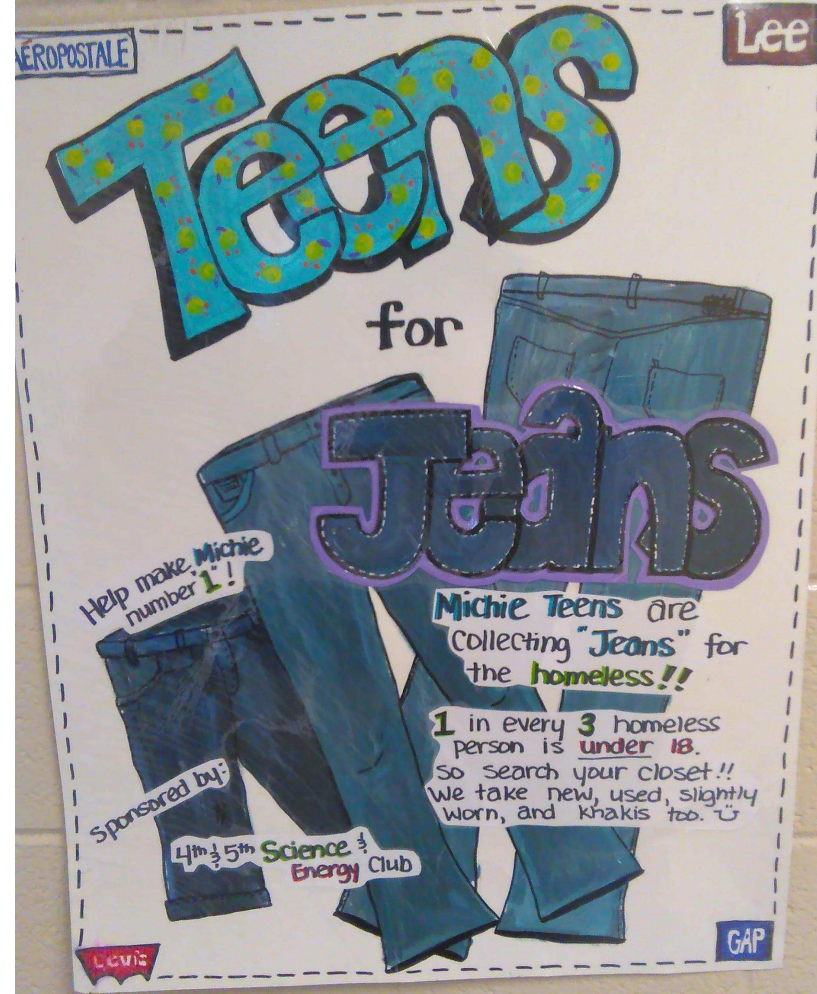 AÉROPOSTALE
Lee
Teens
for
Jeans
Help make Michie
number "1"!
Michie Teens are
Collecting "Jeans" for
the homeless!!
1 in every 3 homeless
person is under 18.
So search your closet!!
We take new, used, slightly
worn, and khakis too.
Sponsored by:
4th & 5th Science &
Energy Club
Levi's
GAP